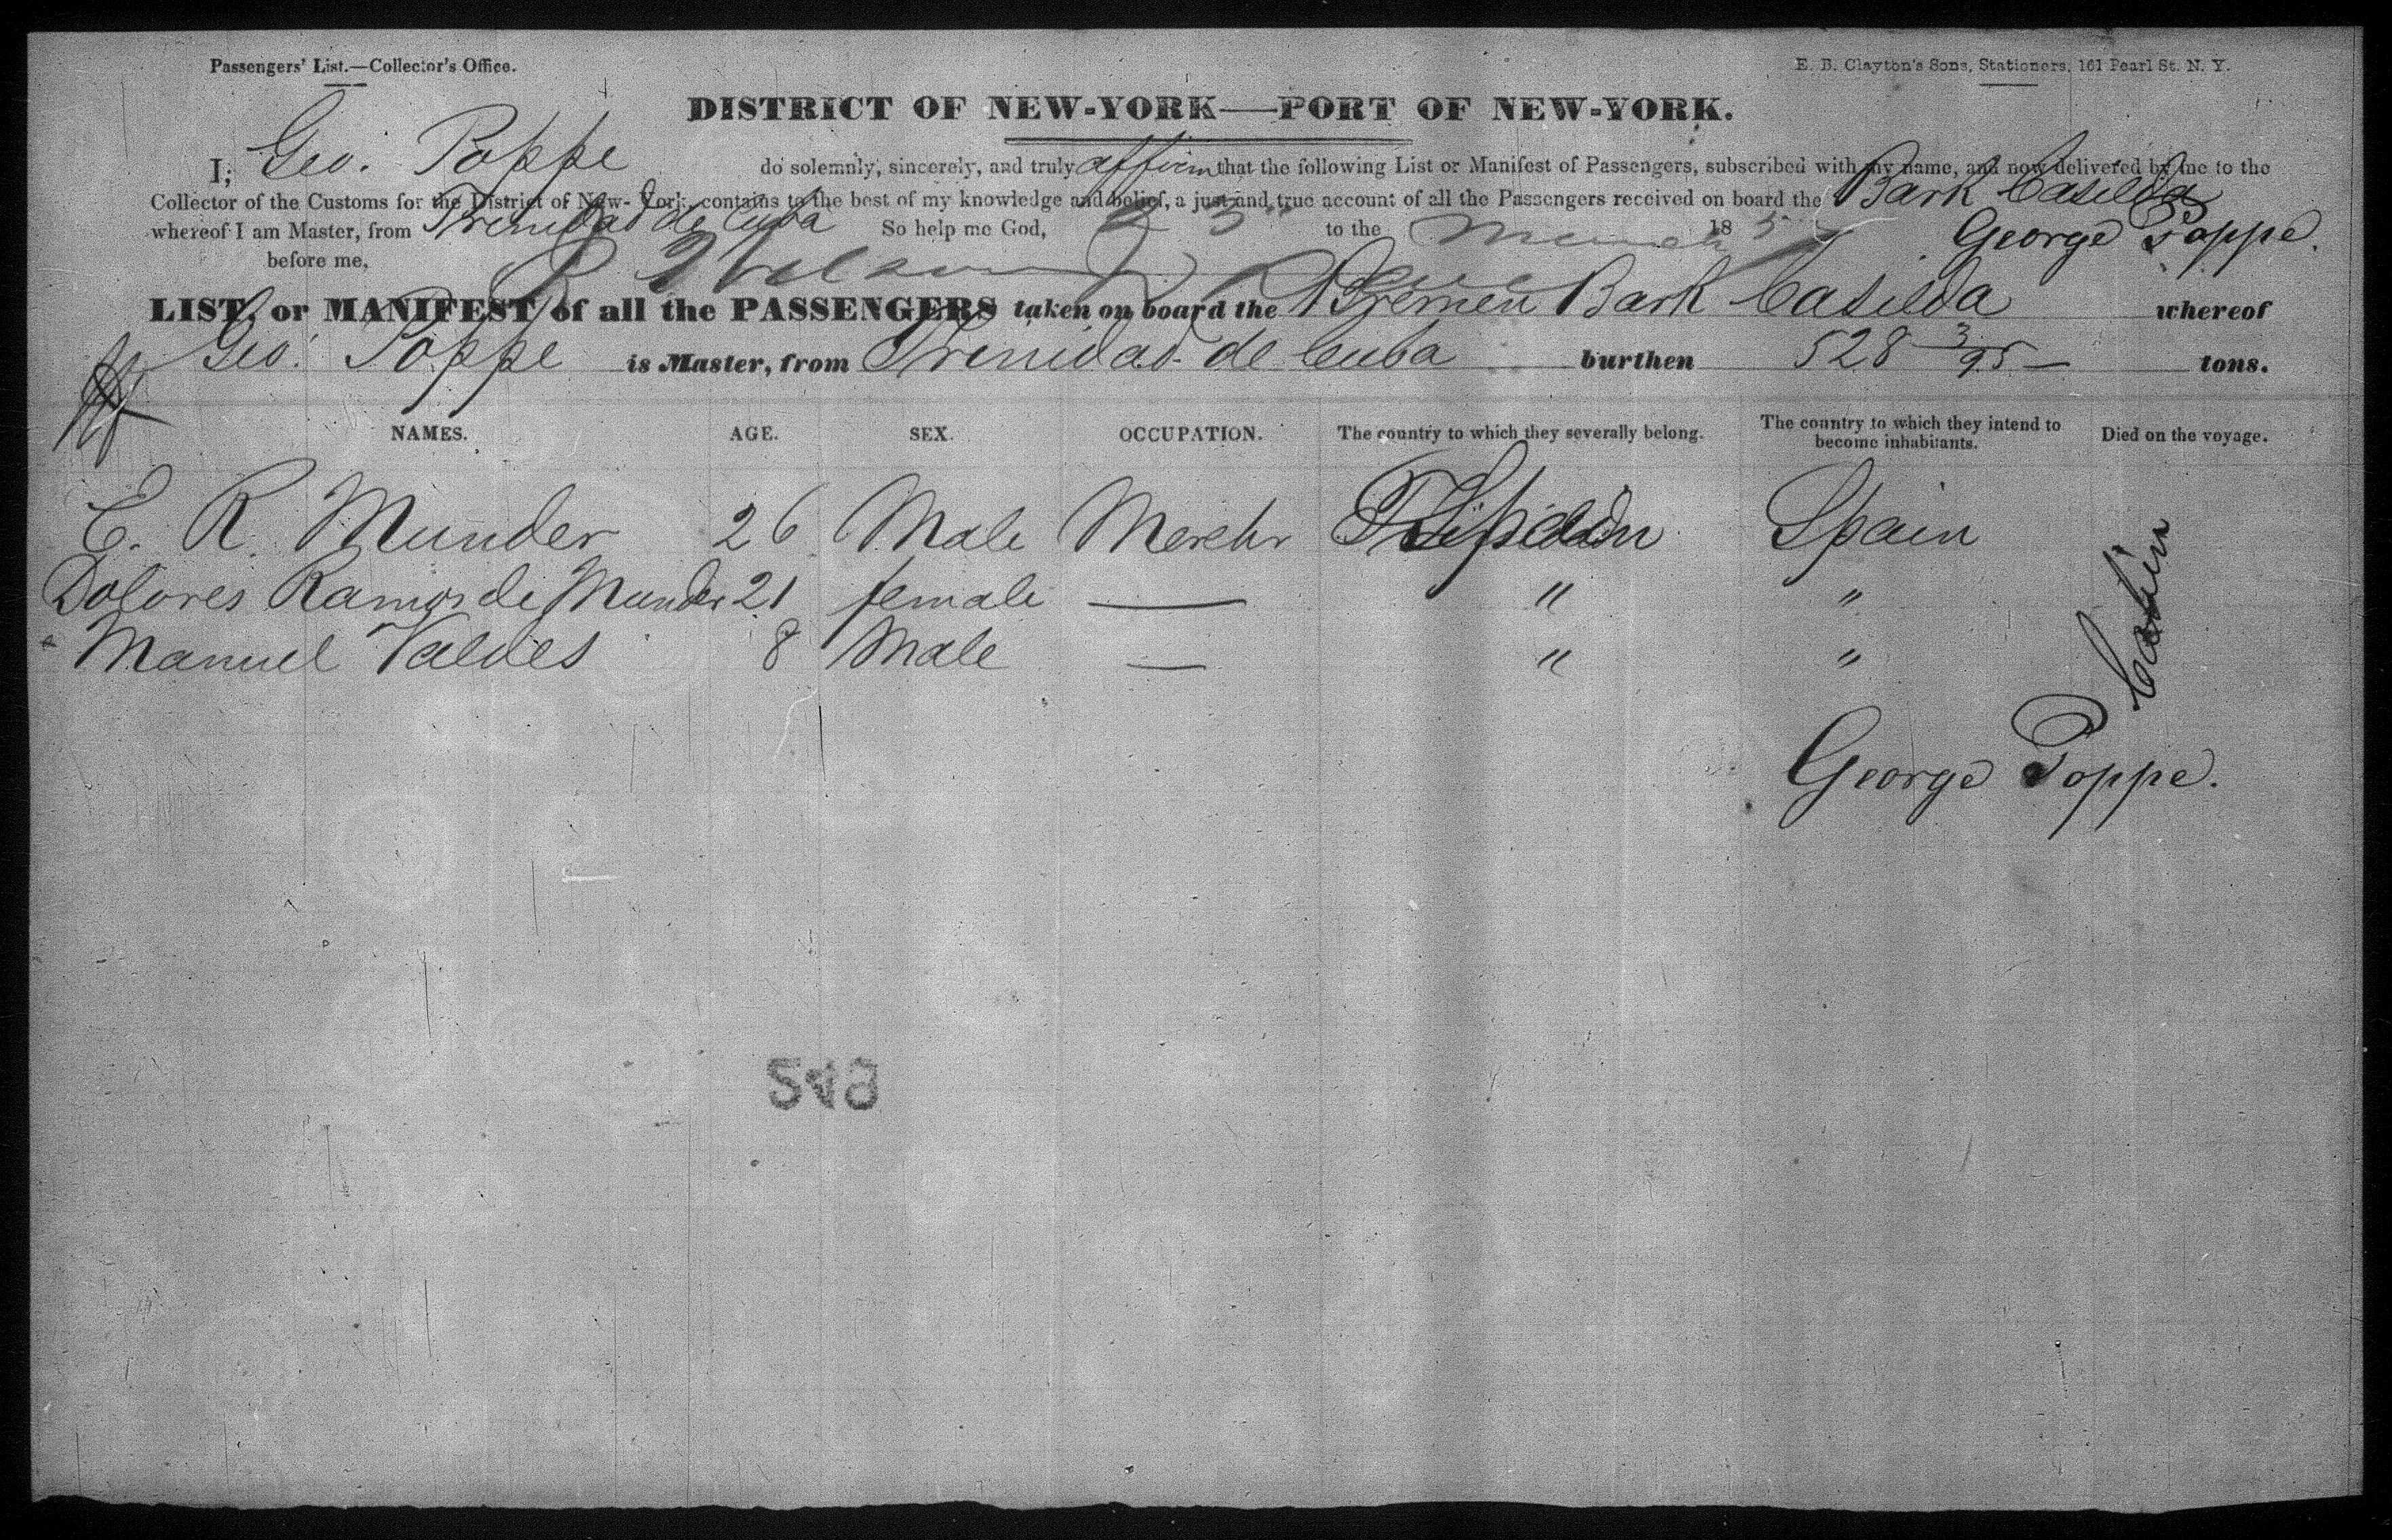 Passengers' List.—Collector's Office.
E. B. Clayton's Sons, Stationers, 161 Pearl St. N. Y.
DISTRICT OF NEW-YORK—PORT OF NEW-YORK.
I, Geo. Poppe do solemnly, sincerely, and truly affirm that the following List or Manifest of Passengers, subscribed with my name, and now delivered by me to the
Collector of the Customs for the District of New-York, contains to the best of my knowledge and belief, a just and true account of all the Passengers received on board the Bark Casilda
whereof I am Master, from Trinidad de Cuba So help me God, 23 to the March 185 George Poppe.
before me,
LIST or MANIFEST of all the PASSENGERS taken on board the Bremen Bark Casilda whereof
Geo. Poppe is Master, from Trinidad de Cuba burthen 528 3/95 tons.
NAMES. AGE. SEX. OCCUPATION. The country to which they severally belong. The country to which they intend to become inhabitants. Died on the voyage.
E. R. Munder 26 Male Merchr Spain
Dolores Ramos de Munder 21 female — " "
Manuel Valdes 8 Male — " "
Cabin
George Poppe.